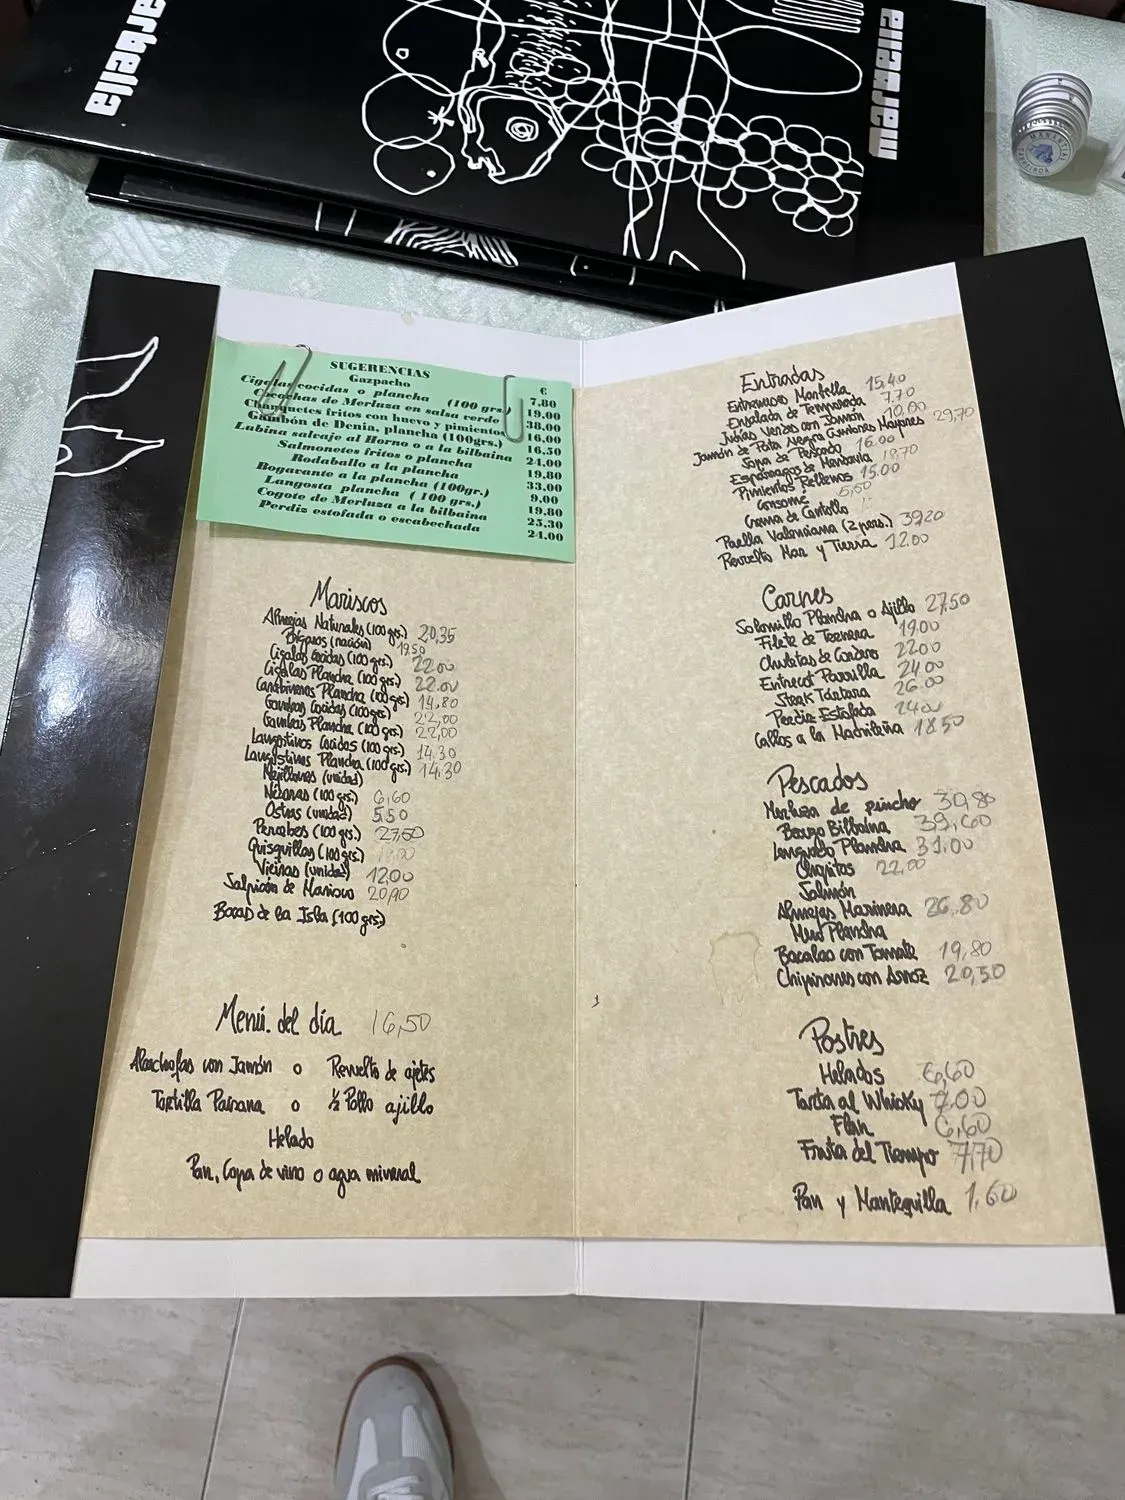 arbella
marbella
SUGERENCIAS
€
Gazpacho 7.80
Cigalas cocidas o plancha (100 grs.) 19.00
Cocochas de Merluza en salsa verde 38.00
Chanquetes fritos con huevo y pimientos 16.00
Gambón de Denia, plancha (100grs.) 16.50
Lubina salvaje al Horno o a la bilbaina 24,00
Salmonetes fritos o plancha 19.80
Rodaballo a la plancha 33.00
Bogavante a la plancha (100gr.) 9.00
Langosta plancha (100 grs.) 19.80
Cogote de Merluza a la bilbaina 25.30
Perdiz estofada o escabechada 24.00
Mariscos
Almejas Naturales (100 grs.) 20,35
Bígaros (ración) 19.50
Cigalas Cocidas (100 grs.) 22.00
Cigalas Plancha (100 grs.) 22.00
Carabineros Plancha (100 grs) 14,80
Gambas Cocidas (100 grs) 22,00
Gambas Plancha (100 grs) 22,00
Langostinos Cocidos (100 grs) 14.30
Langostinos Plancha (100 grs.) 14.30
Mejillones (unidad)
Nécoras (100 grs.) 6,60
Ostras (unidad) 5.50
Percebes (100 grs.) 27,50
Quisquillas (100 grs.)
Vieiras (unidad) 12,00
Salpicón de Marisco 20,90
Bocas de la Isla (100 grs)
Menú del día 16,50
Alcachofas con Jamón o Revuelto de ajetes
Tortilla Paisana o ½ Pollo ajillo
Helado
Pan, Copa de vino o agua mineral
Entradas
Entremeses Marbella 15,40
Ensalada de Temporada 7.70
Judías Verdes con Jamón 10,00
Jamón de Pata Negra Cumbres Mayores 29,70
Sopa de Pescado 16.00
Espárragos de Mendavia 18,70
Pimientos Rellenos 15.00
Consomé 5,50
Crema de Centollo
Paella Valenciana (2 pers.) 39,20
Revuelto Mar y Turia 12.00
Carnes
Solomillo Plancha o Ajillo 27,50
Filete de Ternera 19.00
Chuletas de Cordero 22.00
Entrecot Parrilla 24.00
Steak Tártara 26.00
Perdiz Estofada 24.00
Callos a la Madrileña 18,50
Pescados
Merluza de pincho 30,80
Besugo Bilbaína 39,60
Lenguado Plancha 31.00
Chopitos 22,00
Salmón
Almejas Marinera 26,80
Mero Plancha
Bacalao con Tomate 19,80
Chipirones con Arroz 20,50
Postres
Helados 6,60
Tarta al Whisky 7.00
Flan 6,60
Fruta del Tiempo 7,70
Pan y Mantequilla 1.60